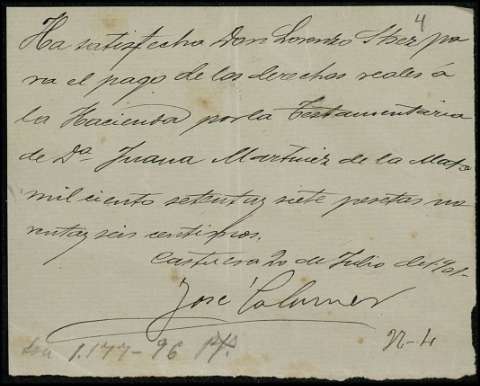 4
Ha satisfecho Don Lorenzo Shez pa
ra el pago de los derechos reales á
la Hacienda por la Testamentaria
de Da. Juana Martinez de la Mata
mil ciento setenta y siete pesetas no
venta y seis centimos.
20 de Julio de 1901.
José Colomer
Son 1.177-96 Pts.